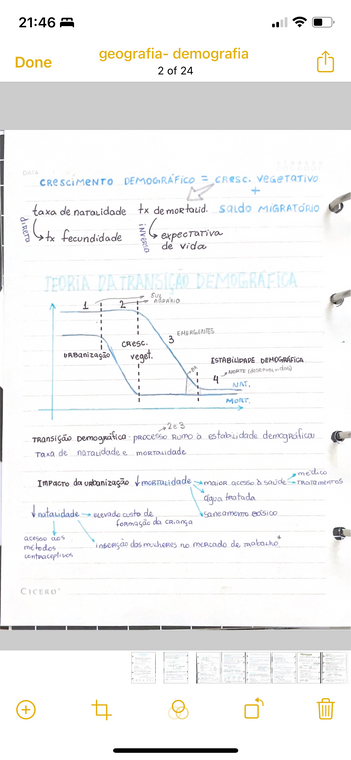 21:46
Done
geografia- demografia
2 of 24
DATA
CRESCIMENTO DEMOGRÁFICO = CRESC. VEGETATIVO
+
taxa de natalidade tx de mortalid. SALDO MIGRATÓRIO
direto
inverso
tx fecundidade
expectativa
de vida
TEORIA DA TRANSIÇÃO DEMOGRÁFICA
1 2
SUL
AGRÁRIO
3 EMERGENTES
URBANIZAÇÃO
CRESC.
veget.
ESTABILIDADE DEMOGRÁFICA
4 NORTE (desenvolvidos)
NAT.
MORT.
2 e 3
TRANSIÇÃO Demográfica: PROCESSO RUMO à estabilidade demográfica
TAXA de natalidade e mortalidade
médico
IMPACTO da urbanização ↓mortalidade → maior acesso à saúde → TRATAMENTOS
água tratada
saneamento básico
↓natalidade → elevado custo de
formação da criança
acesso aos
métodos
contraceptivos
inserção das mulheres no mercado de trabalho
CICERO